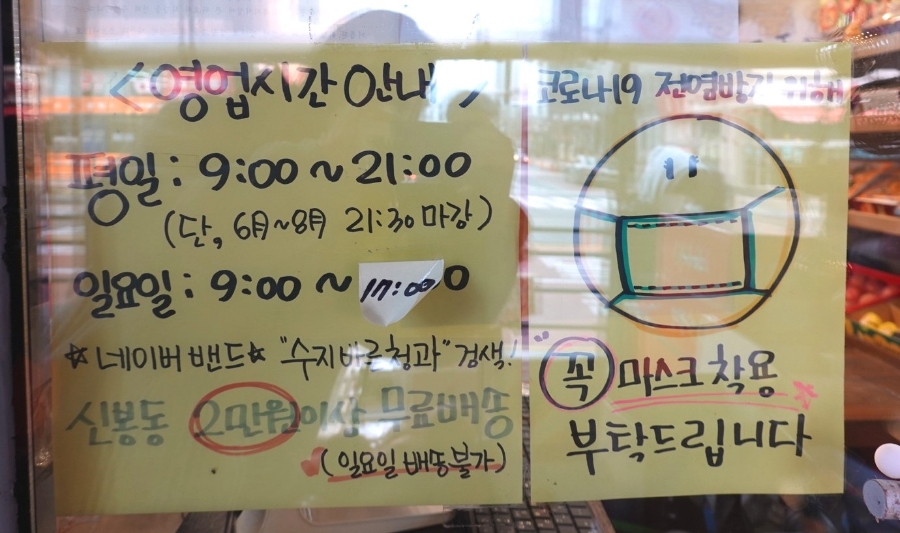 <영업시간 안내>
평일: 9:00 ~ 21:00
(단, 6月~8月 21:30 마감)
일요일: 9:00 ~ 17:00
☆네이버 밴드☆ "수지바른청과" 검색!
신봉동 2만원이상 무료배송
(일요일 배송불가)
코로나19 전염방지 위해
"꼭" 마스크 착용
부탁드립니다